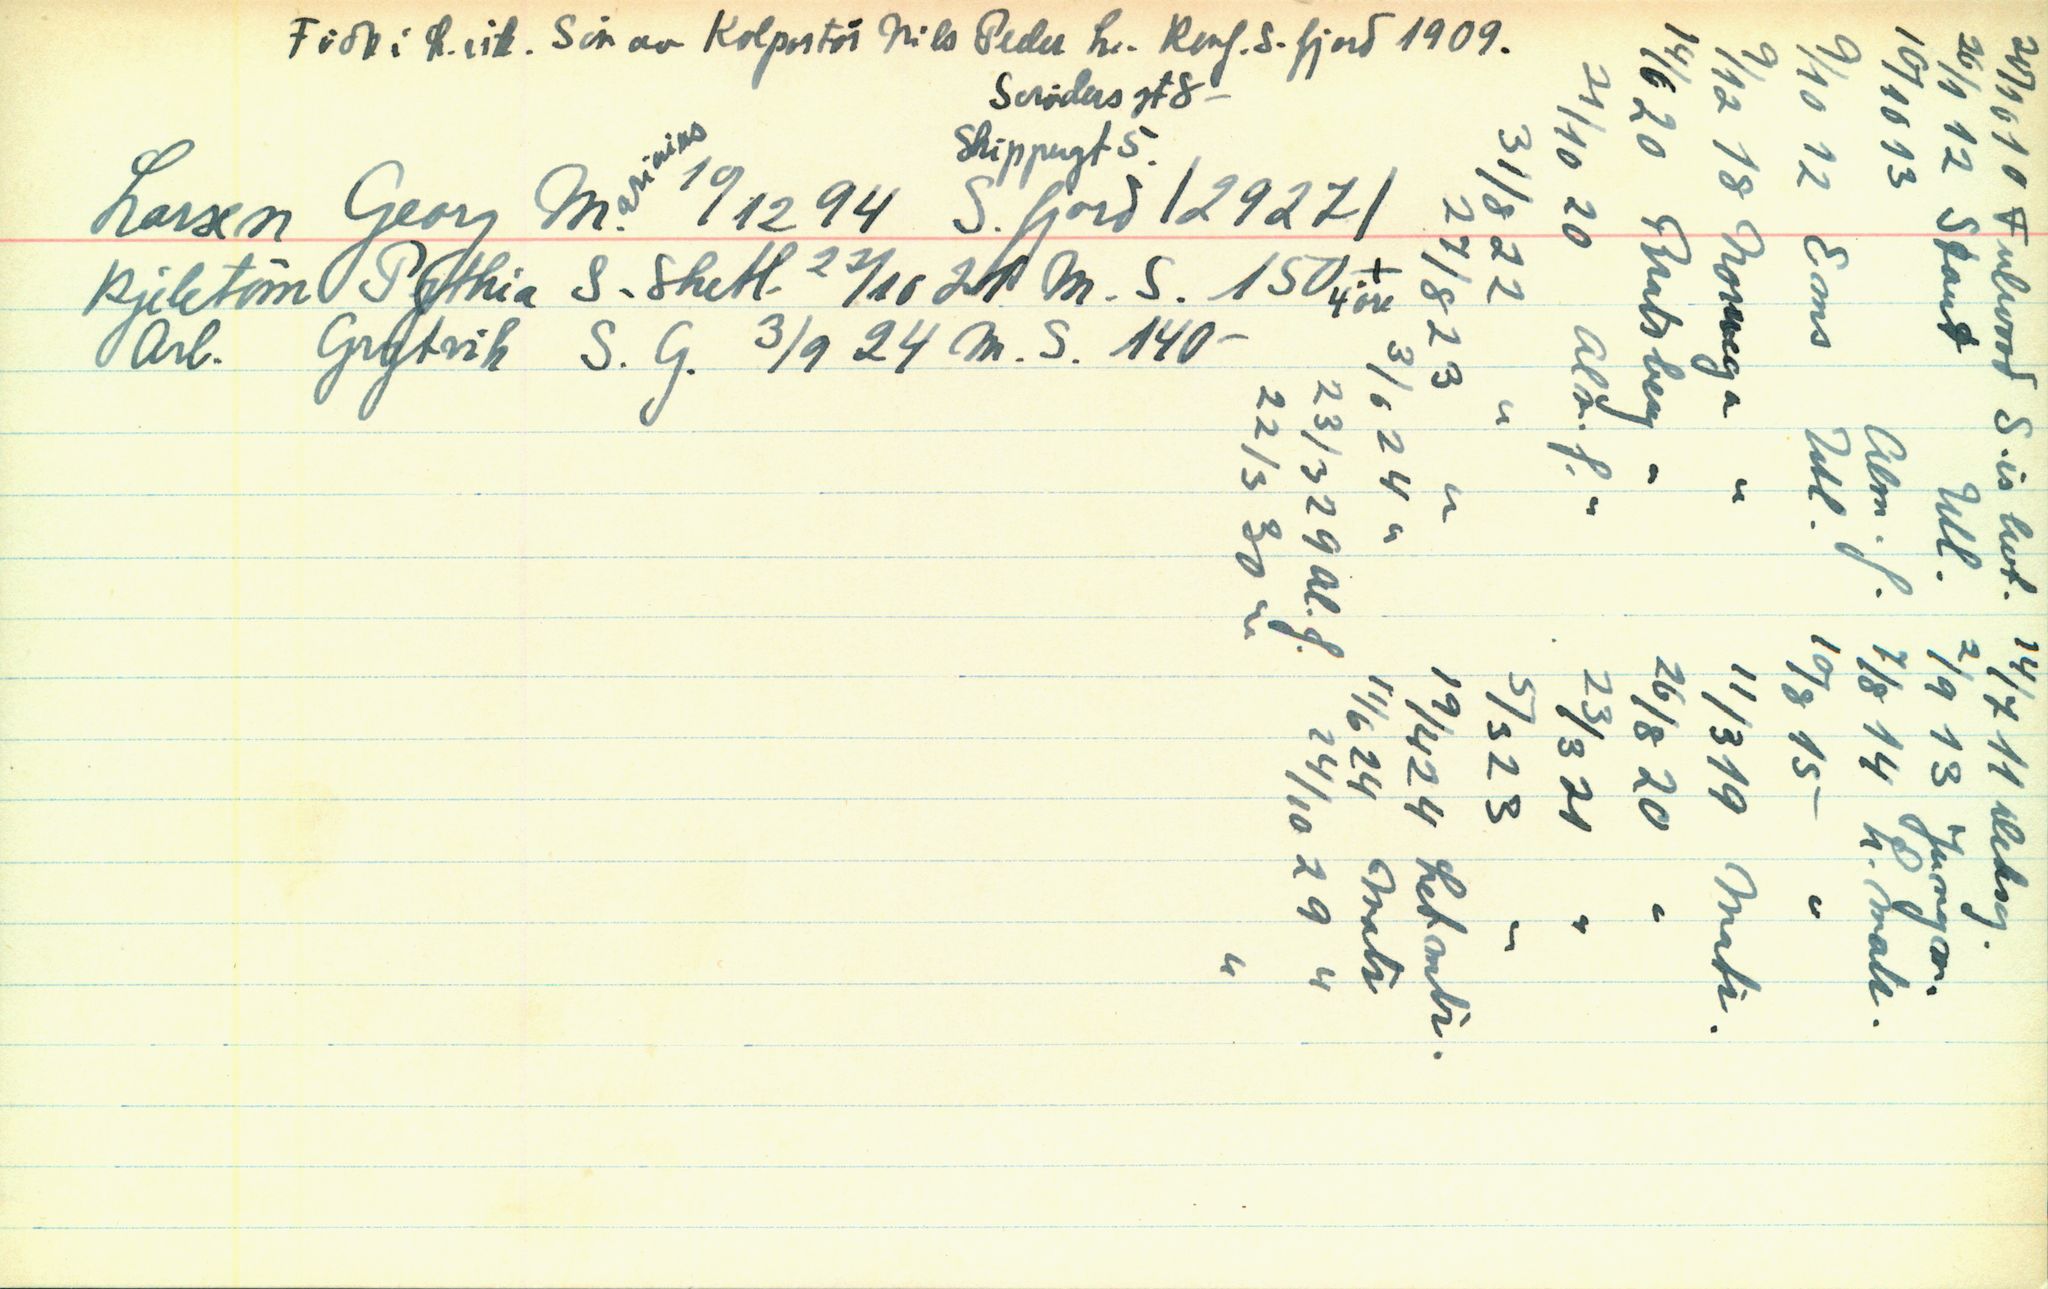 Född i L.vik. Sön av Kolportör Nils Peder L. Konf. S.fjord 1909.
Schrödersgt 8 -
Skippergt 5.
Larsen Georg M. arinius 19/12 94 S.fjord /2927/
Kjeletöm Pythia S. Shetl. 27/10 21 M. S. 150 + 4 öre
Arb. Grytvik S. G. 3/9 24 M. S. 140 -
24/10 10 Fulwood S.is hvt. 14/7 11 deksg.
26/1 12 Staut Utl. 2/9 13 Jungm.
10/10 13 Alm. f. 7/8 14 h. matr.
9/10 12 Ems Utl. 10/8 15 - "
9/12 18 Norwega " 11/3 19 Matr.
14/6 20 Bratsberg " 26/8 20 "
21/10 20 Alm. f. " 23/3 21 "
31/8 22 " 5/3 23 "
27/8 23 " 19/4 24 Letmtr.
3/6 24 " 11/6 24 Matr
23/3 29 Al. f. 24/10 29 "
22/3 30 " "